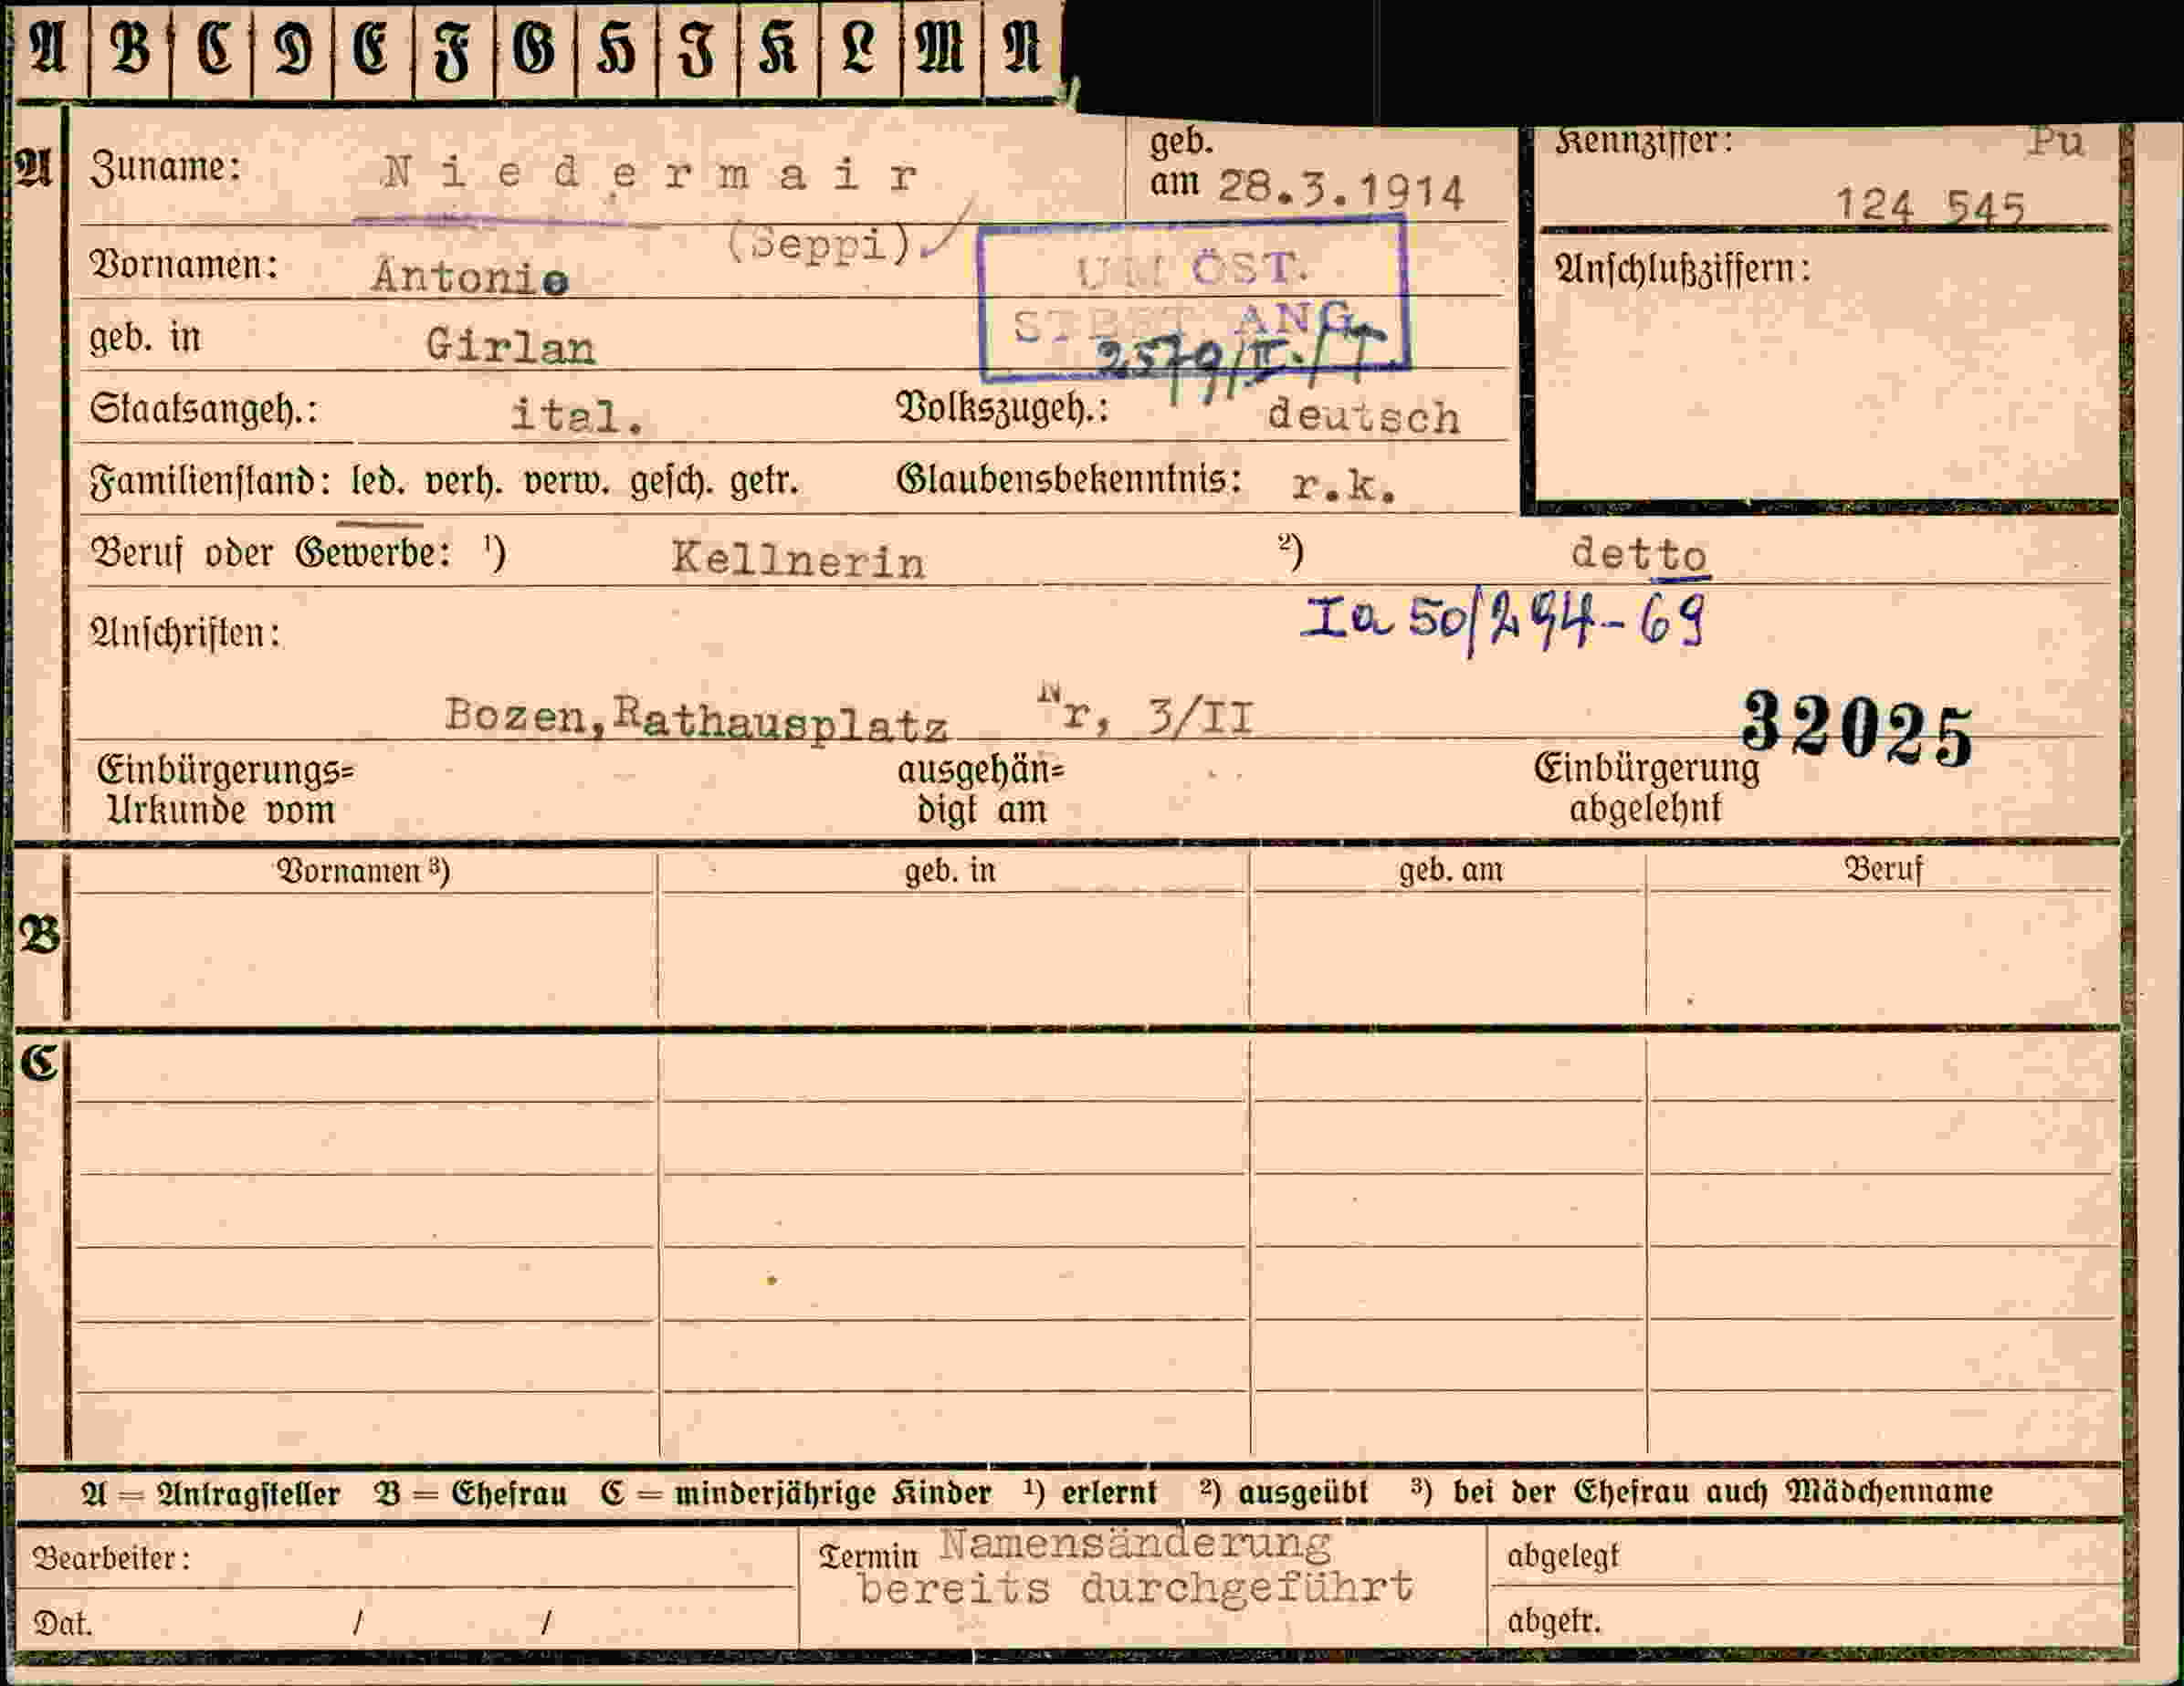 A B C D E F G H I K L M N
A Zuname: Niedermair geb. am 28.3.1914 Kennziffer: Pu 124 545
(Seppi)
Vornamen: Antonie
UM ÖST.
STBST. ANG.
2579/II./T.
Anschlußziffern:
geb. in Girlan
Staatsangeh.: ital. Volkszugeh.: deutsch
Familienstand: led. verh. verw. gesch. getr. Glaubensbekenntnis: r.k.
Beruf oder Gewerbe: 1) Kellnerin 2) detto
Ia 50/294-69
Anschriften:
Bozen,Rathausplatz Nr, 3/II
32025
Einbürgerungs= ausgehän= Einbürgerung
Urkunde vom digt am abgelehnt
Vornamen 3) geb. in geb. am Beruf
B
C
A = Antragsteller B = Ehefrau C = minderjährige Kinder 1) erlernt 2) ausgeübt 3) bei der Ehefrau auch Mädchenname
Bearbeiter: Termin Namensänderung abgelegt
bereits durchgeführt
Dat. / / abgetr.